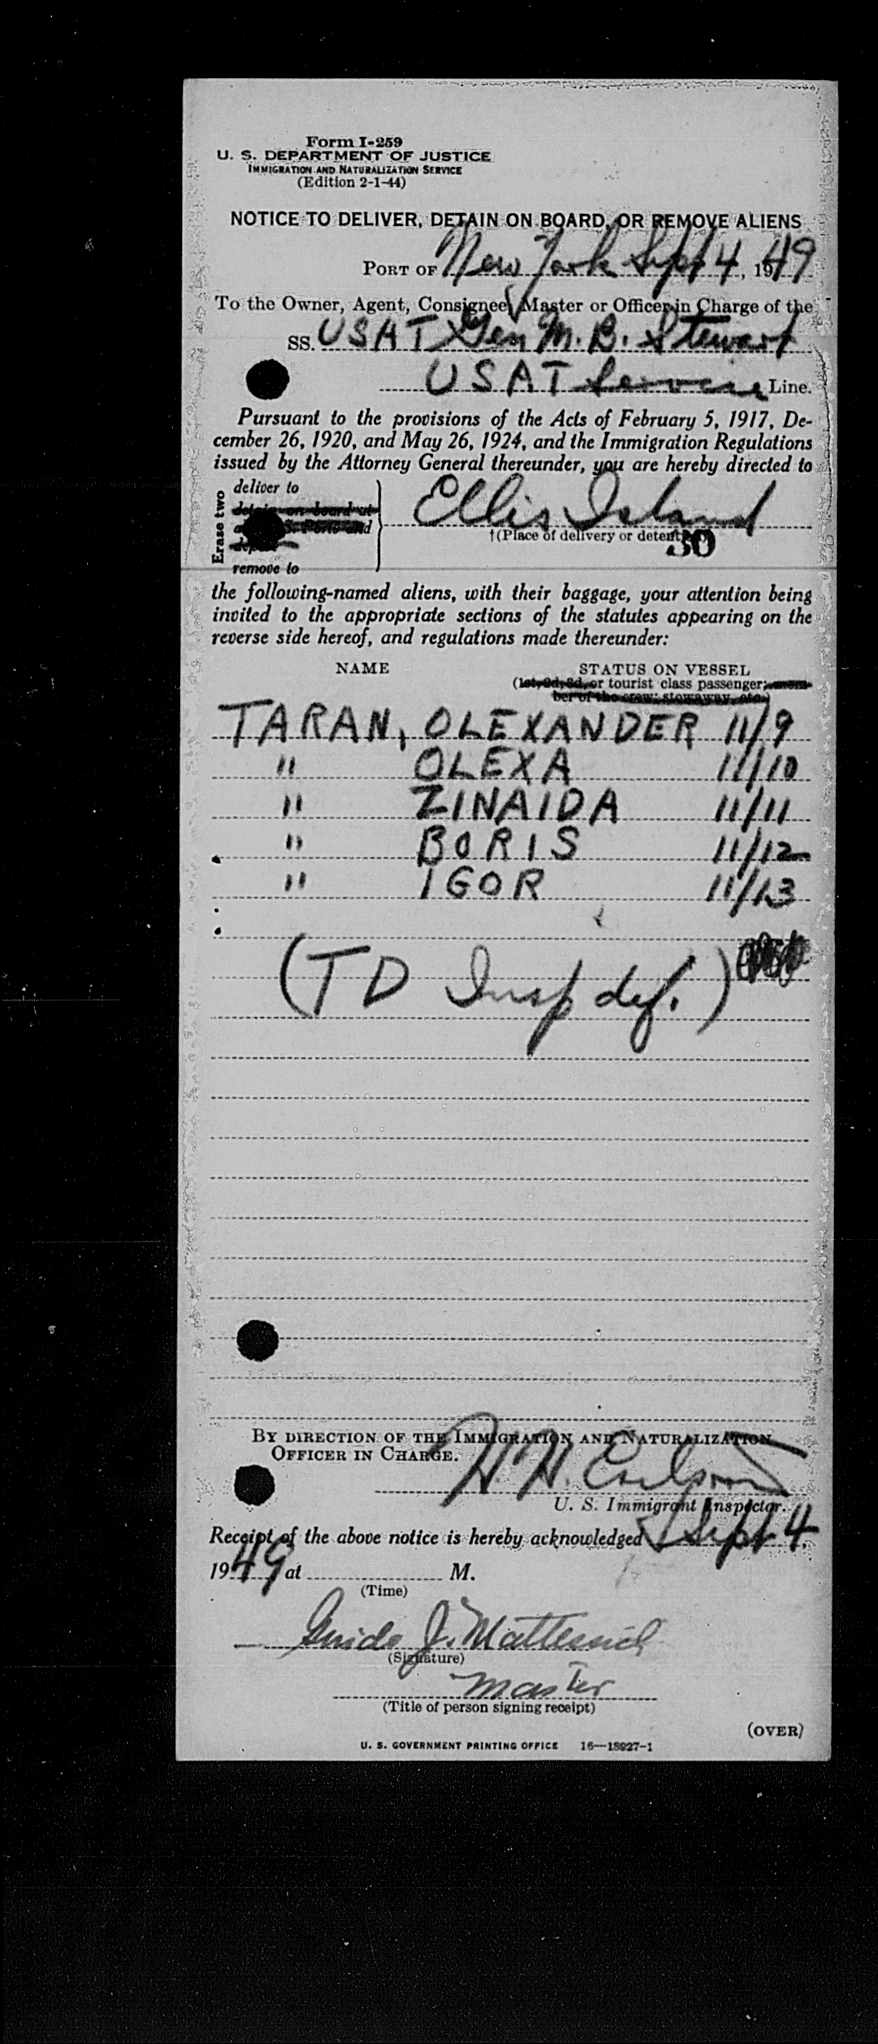 Form I-259
U. S. DEPARTMENT OF JUSTICE
IMMIGRATION AND NATURALIZATION SERVICE
(Edition 2-1-44)
NOTICE TO DELIVER, DETAIN ON BOARD, OR REMOVE ALIENS
PORT OF New York Sept 4, 1949
To the Owner, Agent, Consignee, Master or Officer in Charge of the
SS. USAT Gen M. B. Stewart
USAT Service Line.
Pursuant to the provisions of the Acts of February 5, 1917, De-
cember 26, 1920, and May 26, 1924, and the Immigration Regulations
issued by the Attorney General thereunder, you are hereby directed to
Erase two
deliver to
detain on board at
Ports and
remove to
Ellis Island
†(Place of delivery or detention)
30
the following-named aliens, with their baggage, your attention being
invited to the appropriate sections of the statutes appearing on the
reverse side hereof, and regulations made thereunder:
NAME STATUS ON VESSEL
(1st, 2d, 3d, or tourist class passenger; mem-
ber of the crew; stowaway, etc.)
TARAN, OLEXANDER 11/9
" OLEXA 11/10
" ZINAIDA 11/11
" BORIS 11/12
" IGOR 11/13
(TD Insp def.)
BY DIRECTION OF THE IMMIGRATION AND NATURALIZATION
OFFICER IN CHARGE.
U. S. Immigrant Inspector.
Receipt of the above notice is hereby acknowledged Sept 4,
1949 at M.
(Time)
Guido J. Mattessich
(Signature)
Master
(Title of person signing receipt)
(OVER)
U. S. GOVERNMENT PRINTING OFFICE 16—18927-1